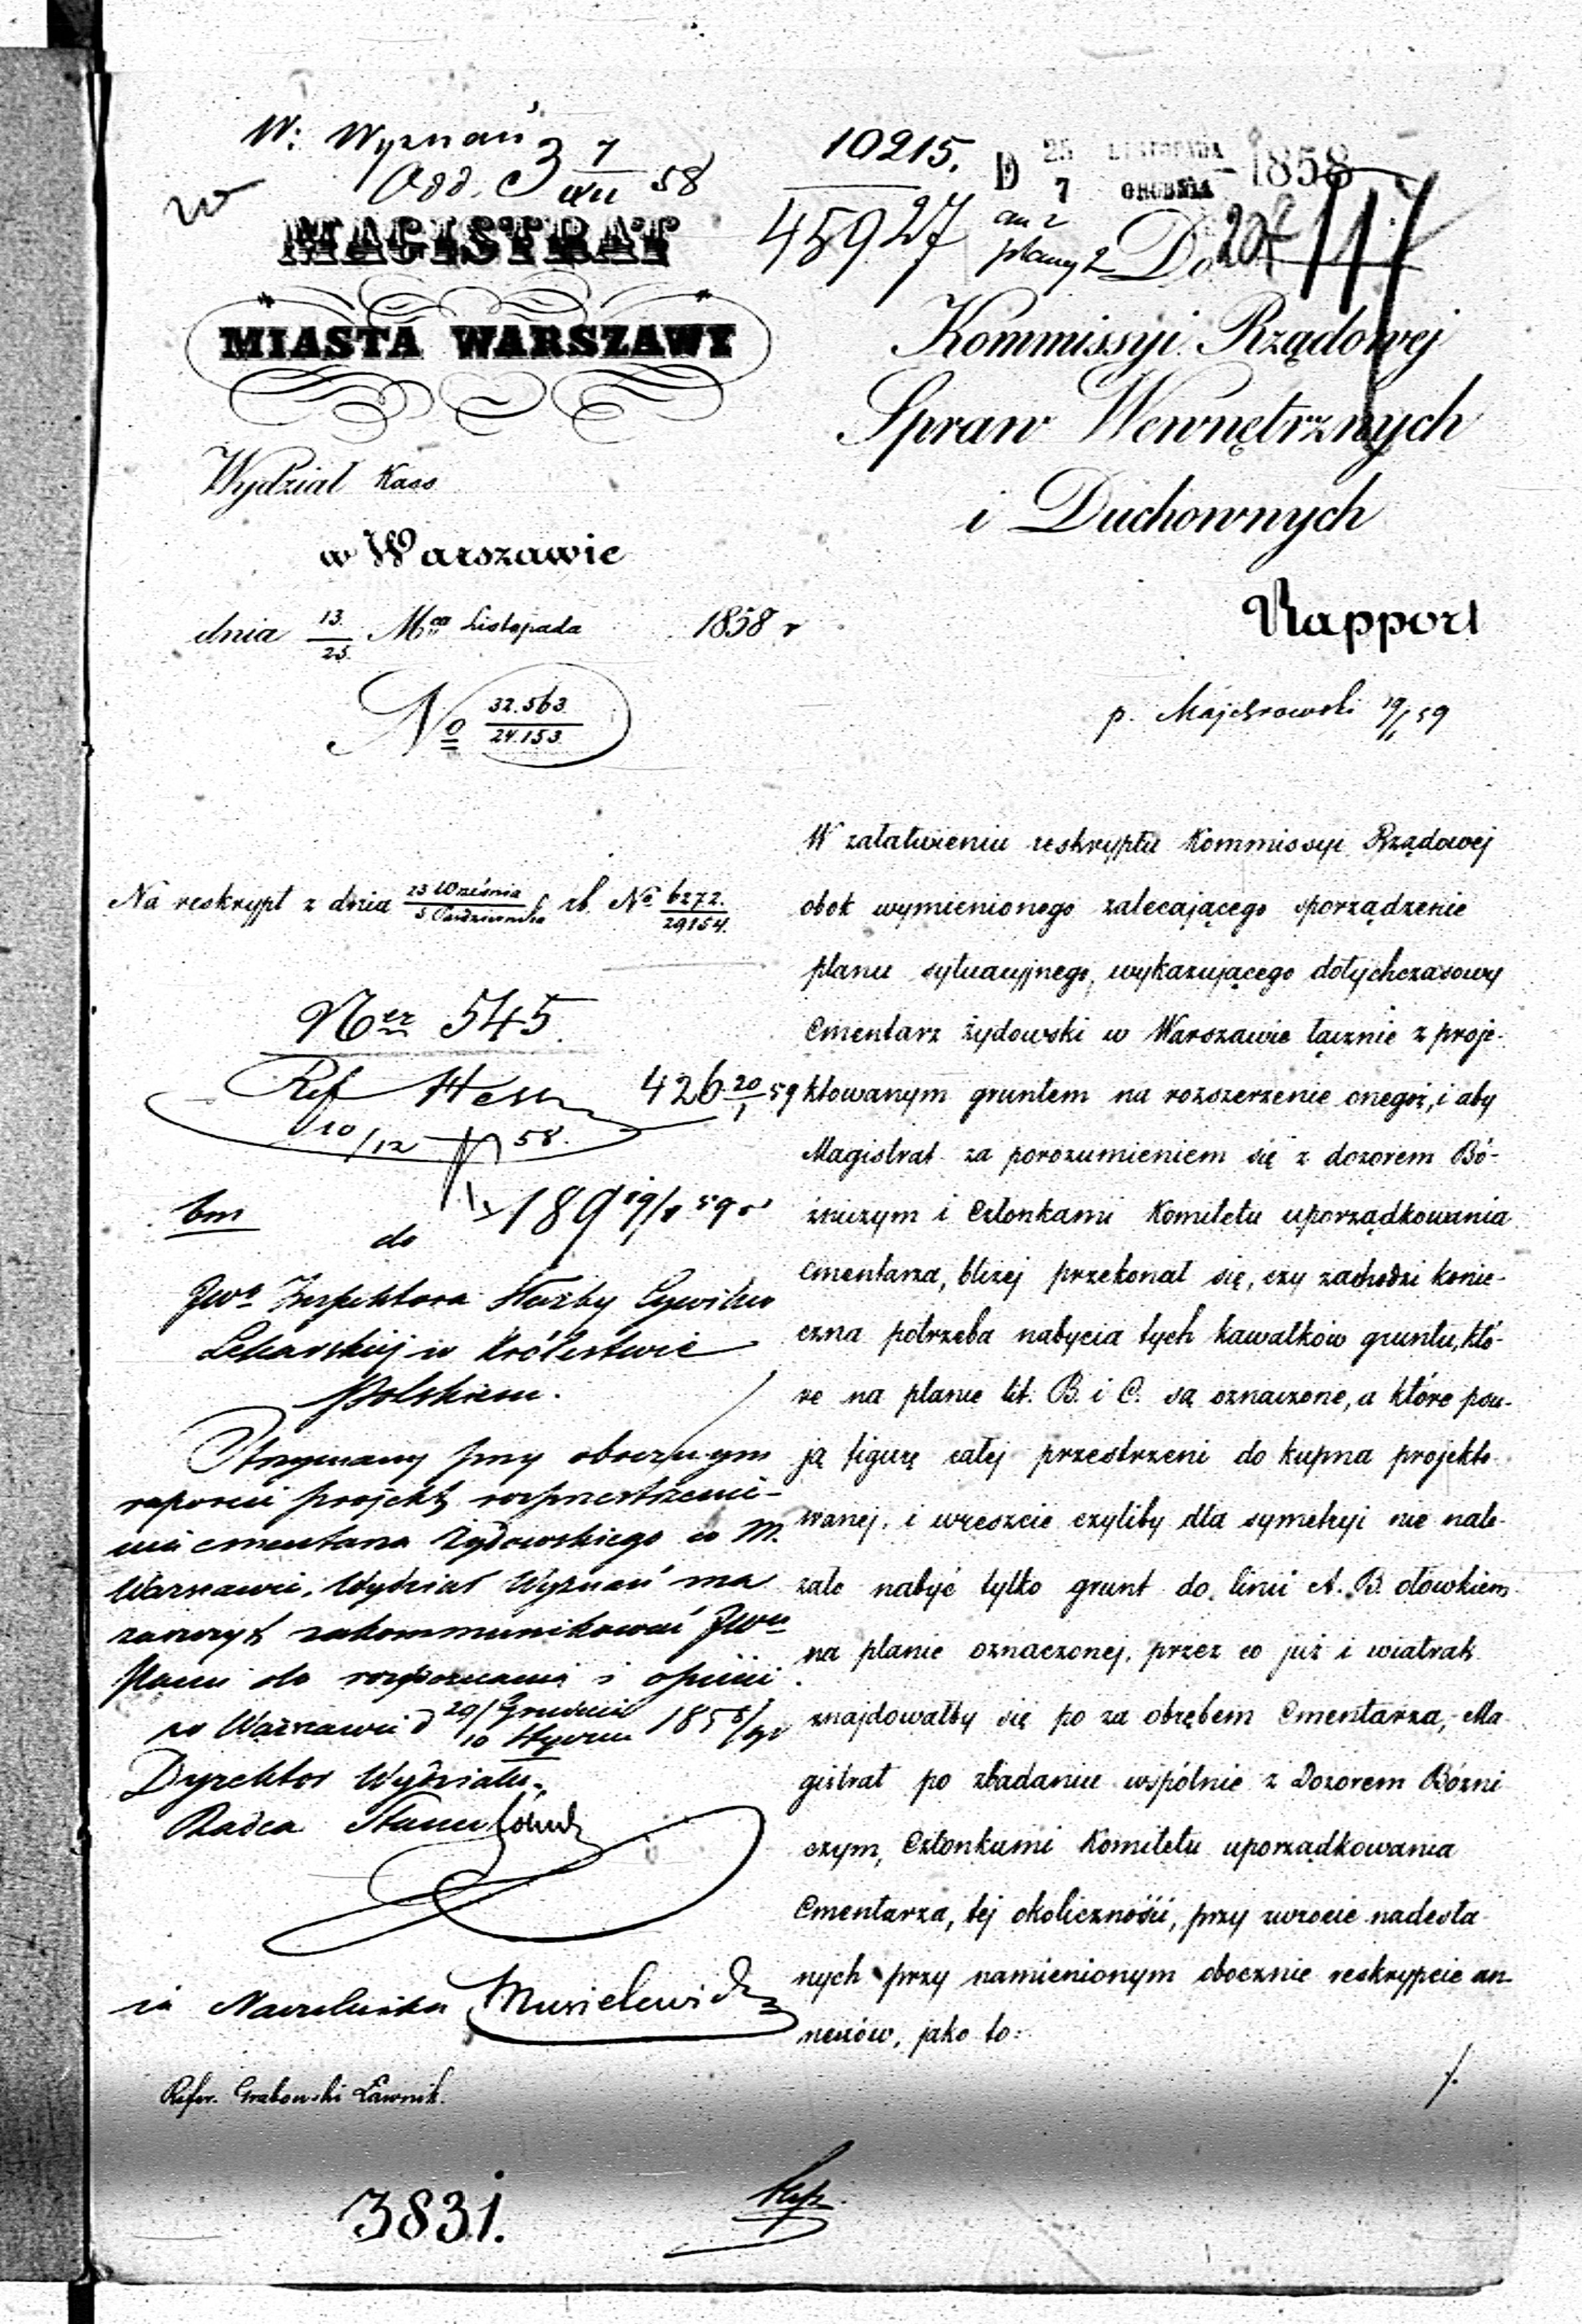 W. Wyznań
Odd. 3 7/XII 58
10215.
45927
D 25 LISTOPADA
7 GRUDNIA 1858
an 2
plany 2
MAGISTRAT
MIASTA WARSZAWY
Wydział Kass
w Warszawie
dnia 13/25 Mca Listopada 1858 r
No 32.563/24.153
Do
Kommissyi Rządowej
Spraw Wewnętrznych
i Duchownych
Rapport
p. Majchrowski 19/1 59
Na reskrypt z dnia 23 Września/5 Października rb. No 6272./29154.
Ner 545.
Ref
10/12 58.
426 20/1 59
189 19/1 59
do
JWo Inspektora Służby Cywilno
Lekarskiej w Królestwie
Polskiem.
Otrzymany przy obocznym
raporcie projekt rozprzestrzenie-
nia cmentarza Żydowskiego w M.
Warszawie, Wydział Wyznań ma
zaszczyt zakommunikować JWu
Panu do rozpoznania i opinii.
w Warszawie d 29/10 Grudnia/Stycznia 1858/9
Dyrektor Wydziału
Radca Stanu
za Naczelnika Musielewicz
Refer. Grabowski Ławnik.
3831.
W załatwieniu reskryptu Kommissyi Rządowej
obok wymienionego zalecającego sporządzenie
planu sytuacyjnego, wykazującego dotychczasowy
Cmentarz żydowski w Warszawie łącznie z proje-
ktowanym gruntem na rozszerzenie onegoż, i aby
Magistrat za porozumieniem się z dozorem Bó-
żniczym i Członkami Komitetu uporządkowania
Cmentarza, bliżej przekonał się, czy zachodzi konie-
czna potrzeba nabycia tych kawałków gruntu, któ-
re na planie lit. B. i C. są oznaczone, a które psu-
ją figurę całej przestrzeni do kupna projekto-
wanej, i wreszcie czyliby dla symetryi nie nale-
żało nabyć tylko grunt do linii A. B. ołówkiem
na planie oznaczonej, przez co już i wiatrak
znajdowałby się po za obrębem Cmentarza, Ma-
gistrat po zbadaniu wspólnie z Dozorem Bóżni
czym, Członkami Komitetu uporządkowania
Cmentarza, tej okoliczności, przy zwrocie nadesła-
nych przy namienionym obocznie reskrypcie an-
nexów, jako to: